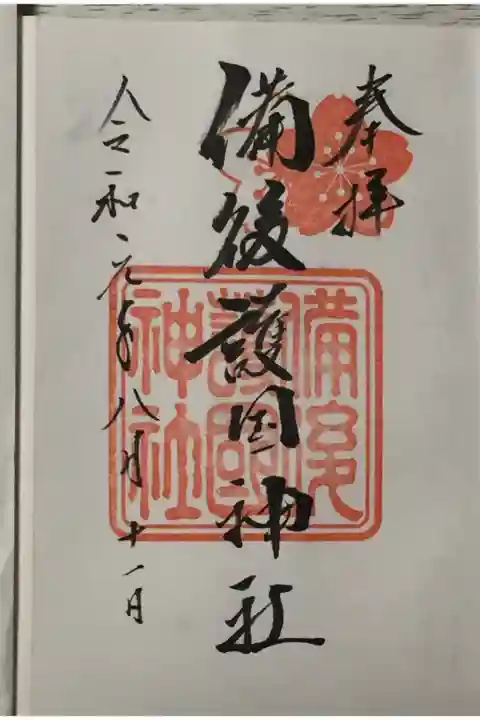 奉拝
備後護国神社
備後
護國
神社
令和元年八月十一日